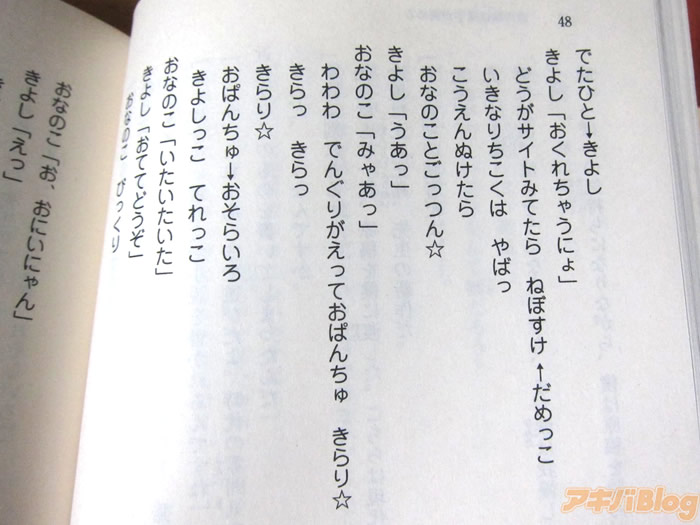 48
でたひと→きよし
きよし「おくれちゃうにょ」
どうがサイトみてたら　ねぼすけ　←だめっこ
いきなりちこくは　やばっ
こうえんぬけたら
おなのことごっつん☆
きよし「うあっ」
おなのこ「みゃあっ」
わわわ　でんぐりがえっておぱんちゅ　きらり☆
きらっ　きらっ
きらり☆
おぱんちゅ→おそらいろ
きよしっこ　てれっこ
おなのこ「いたいたいた」
きよし「おててどうぞ」
おなのこ　びっくり
おなのこ「お、おにいにゃん」
きよし「えっ」
アキバBlog